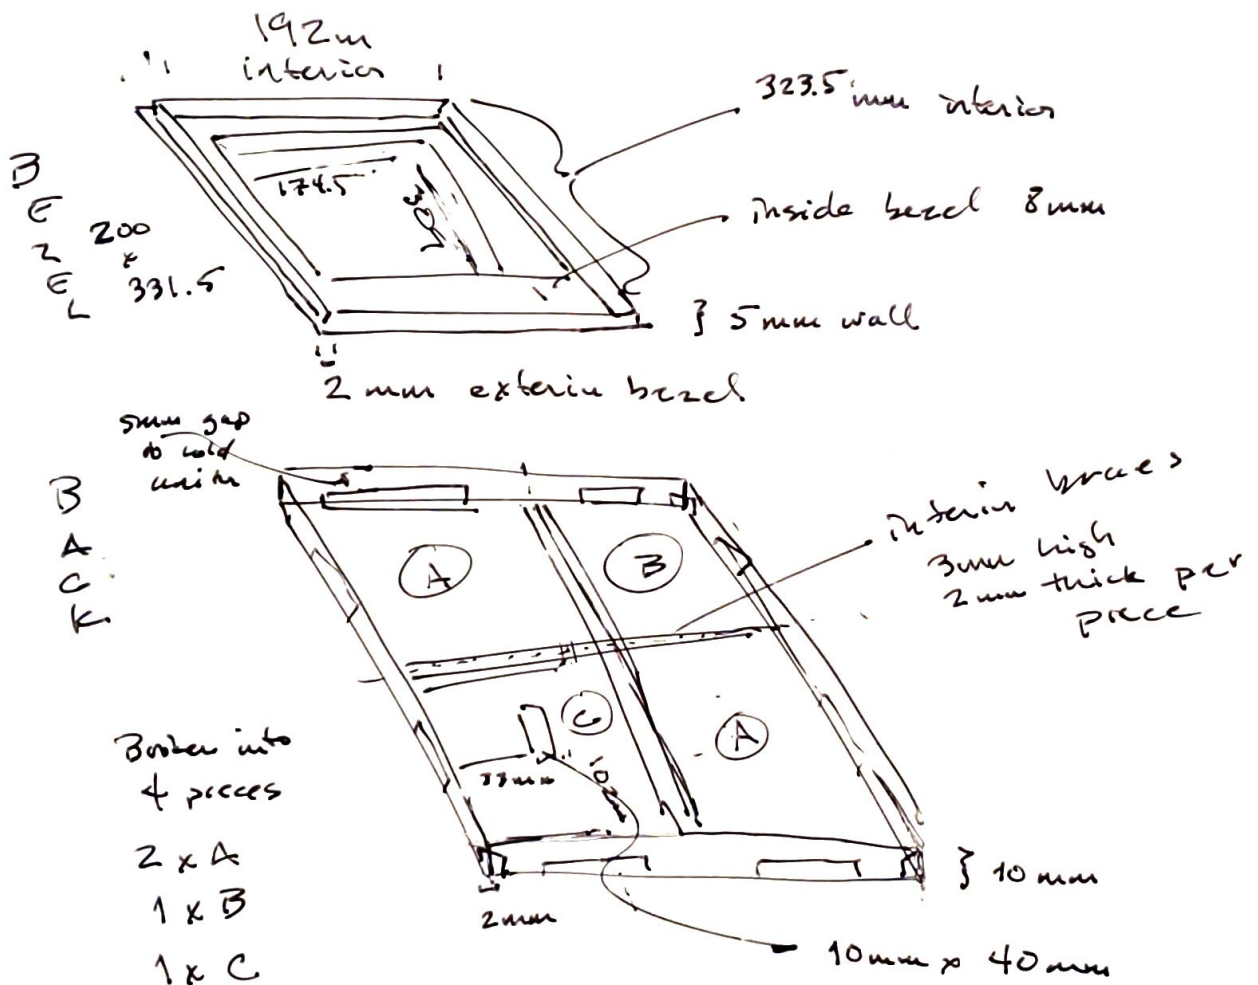 192m
interior
323.5 mm interior
174.5
307
inside bezel 8mm
BEZEL
200
x
331.5
} 5mm wall
2 mm exterior bezel
5mm gap
to hold
unit
BACK
interior braces
3mm high
2mm thick per
piece
A
B
C
A
Broken into
4 pieces
2 x A
1 x B
1 x C
2mm
} 10 mm
10mm x 40mm